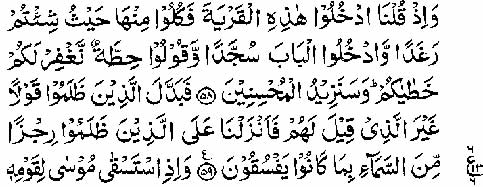 وَاِذْ قُلْنَا ادْخُلُوْا هٰذِهِ الْقَرْيَةَ فَكُلُوْا مِنْهَا حَيْثُ شِئْتُمْ
رَغَدًا وَّادْخُلُوا الْبَابَ سُجَّدًا وَّقُوْلُوْا حِطَّةٌ نَّغْفِرْ لَكُمْ
خَطٰيٰكُمْ ؕ وَسَنَزِيْدُ الْمُحْسِنِيْنَ ﴿۵۸﴾ فَبَدَّلَ الَّذِيْنَ ظَلَمُوْا قَوْلًا
غَيْرَ الَّذِىْ قِيْلَ لَهُمْ فَاَنْزَلْنَا عَلَى الَّذِيْنَ ظَلَمُوْا رِجْزًا
مِّنَ السَّمَآءِ بِمَا كَانُوْا يَفْسُقُوْنَ ﴿۵۹﴾ وَاِذِ اسْتَسْقٰى مُوْسٰى لِقَوْمِهٖ